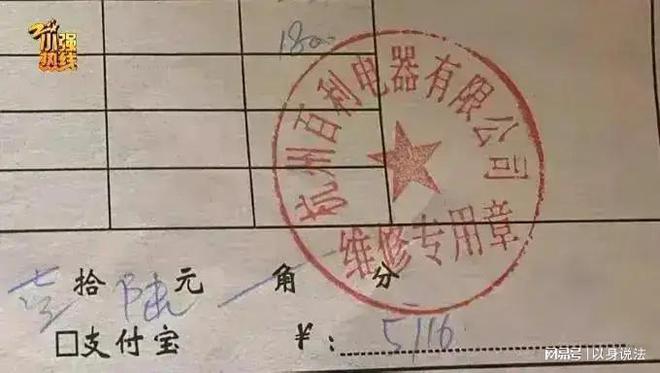 小强
热线
180
杭州百利电器有限公司
维修专用章
壹拾陆元一角 分
□支付宝 ¥: 5116
网易号 | 以身说法